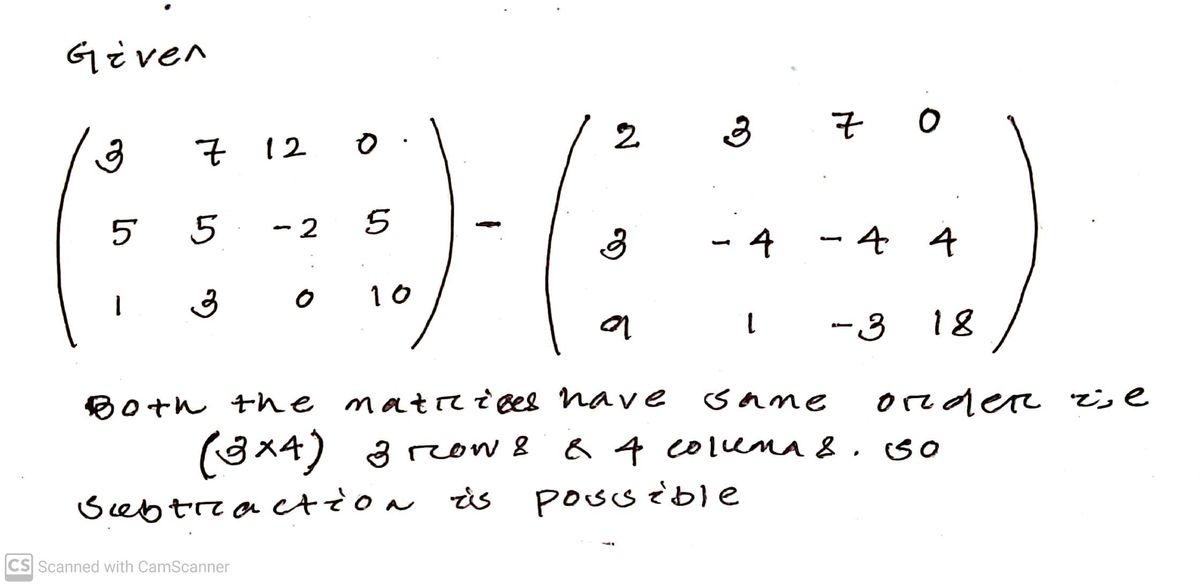 Given
3 7 12 0 2 3 7 0
5 5 -2 5 - 3 -4 -4 4
1 3 0 10 9 1 -3 18
Both the matrices have same order i,e
(3×4) 3 rows & 4 columns. so
subtraction is possible
CS Scanned with CamScanner